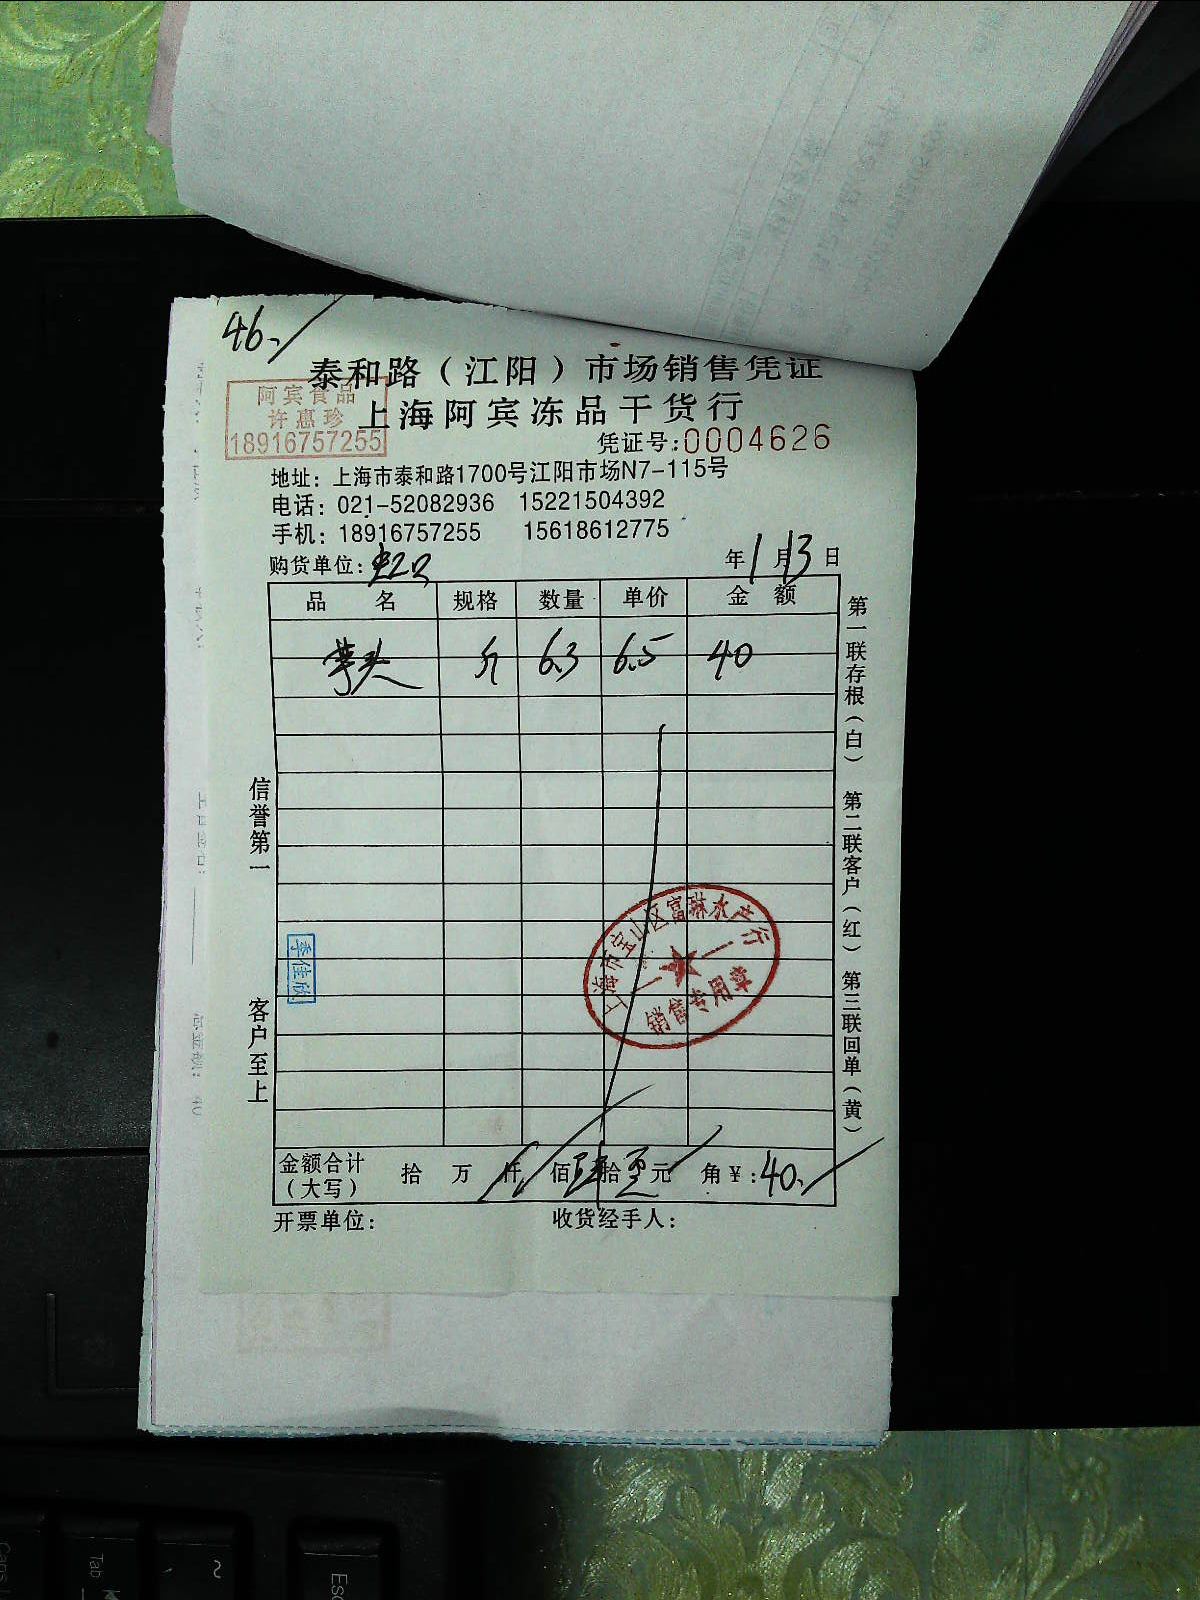 46.
泰和路（江阳）市场销售凭证
阿宾食品
许惠珍
18916757255
上海阿宾冻品干货行
凭证号:0004626
地址: 上海市泰和路1700号江阳市场N7-115号
电话: 021-52082936 15221504392
手机: 18916757255 15618612775
购货单位: 年1月13日
品 名 规格 数量 单价 金 额
芋头 斤 6.3 6.5 40
信誉第一
客户至上
季佳欣
第一联存根（白） 第二联客户（红） 第三联回单（黄）
上海市宝山区富琳水产行
销售专用章
金额合计
（大写） 拾 万 仟 佰 肆拾零元 角¥:40.
开票单位: 收货经手人:
Caps
Tab
~
Esc